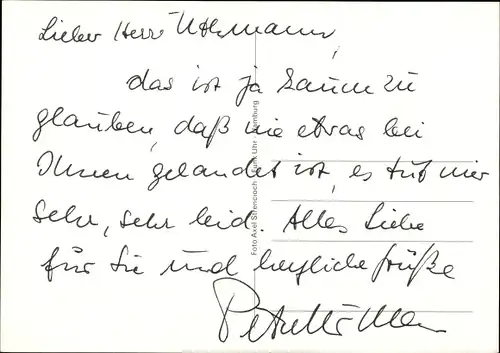 Lieber Herr Uthmann,
das ist ja kaum zu
glauben, daß nie etwas bei
Ihnen gelandet ist, es tut mir
sehr, sehr leid. Alles Liebe
für Sie und herzliche Grüße
Foto Axel
Hamburg